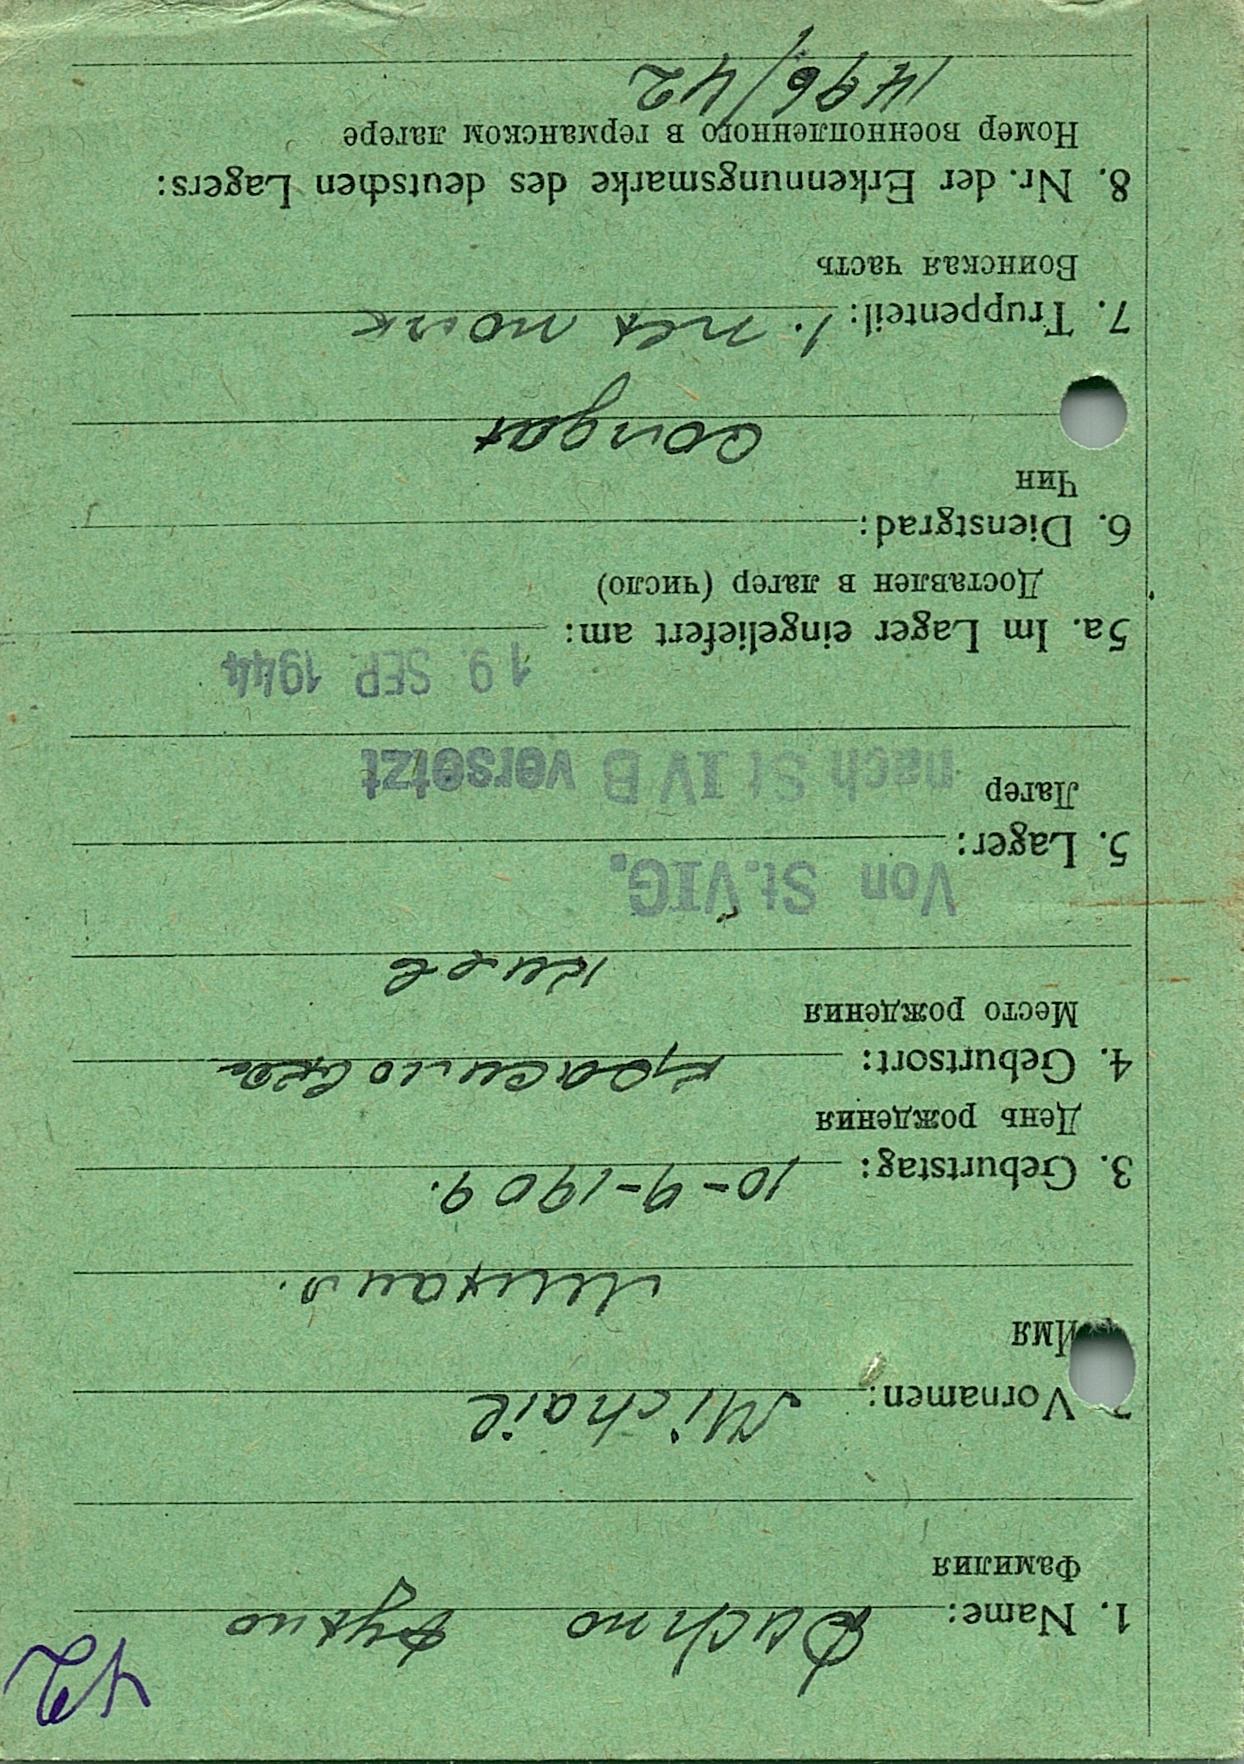 42
1. Name: Duchno Духно
Фамилия
Vornamen: Michail
Имя
Михаил.
3. Geburtstag: 10-9-1909.
День рождения
4. Geburtsort:
Место рождения
Киев
Von St.VIG.
5. Lager:
Лагер
nach St IV B versetzt
19. SEP. 1944
5a. Im Lager eingeliefert am:
Доставлен в лагер (число)
6. Dienstgrad:
Чин
солдат
7. Truppenteil: 1. пех полк
Воинская часть
8. Nr. der Erkennungsmarke des deutschen Lagers:
Номер военнопленного в германском лагере
1496/42